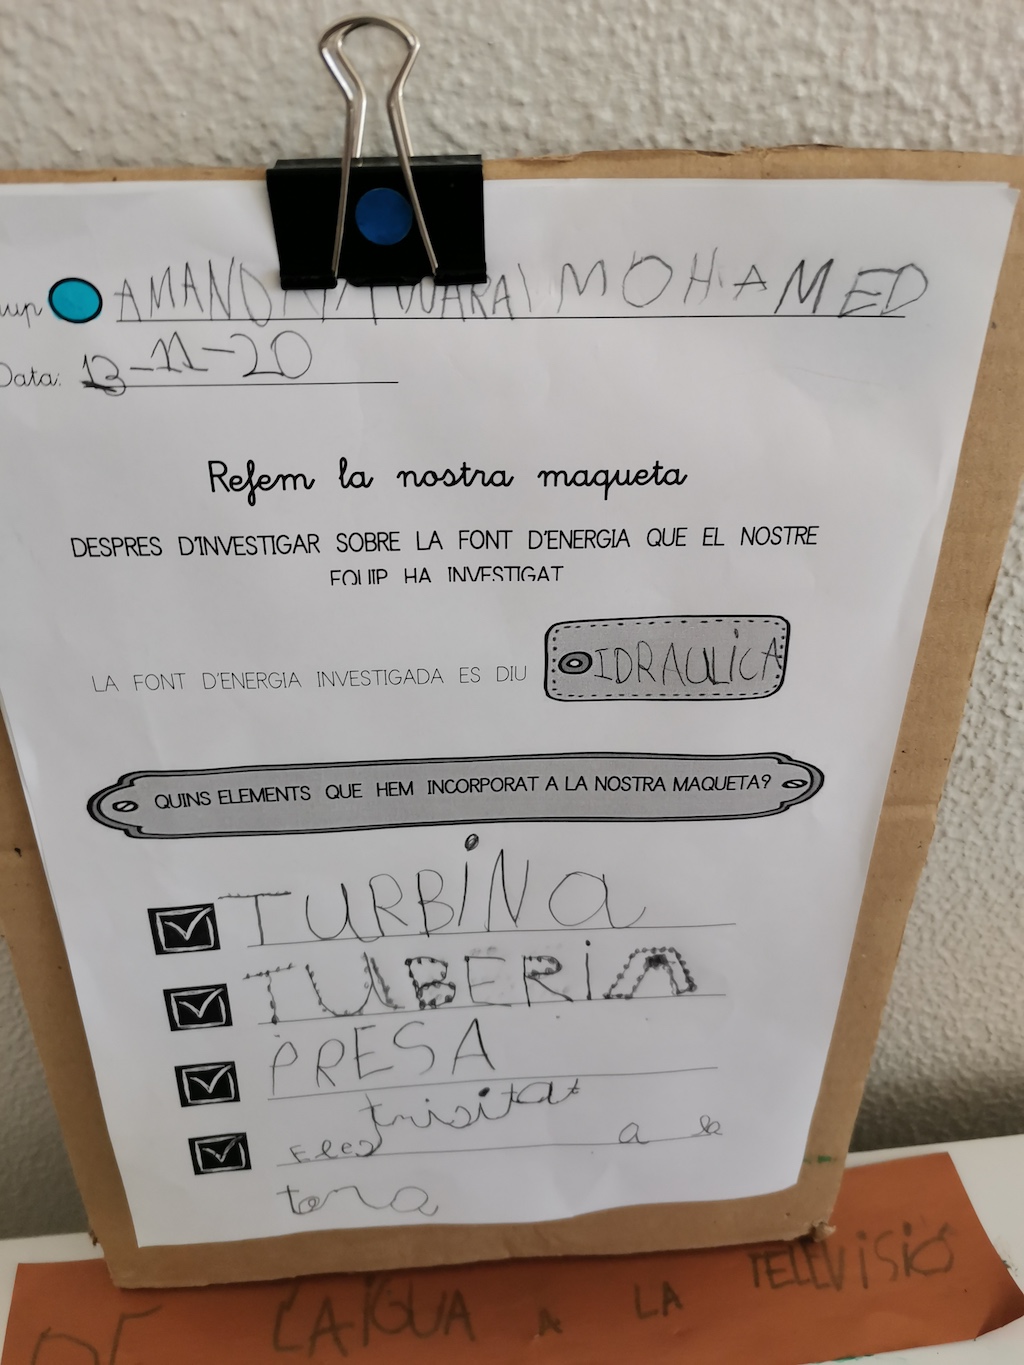 AMANDA MOHAMED
Data: 13-11-20
Refem la nostra maqueta
DESPRES D'INVESTIGAR SOBRE LA FONT D'ENERGIA QUE EL NOSTRE
EQUIP HA INVESTIGAT
LA FONT D'ENERGIA INVESTIGADA ES DIU IDRAULICA
QUINS ELEMENTS QUE HEM INCORPORAT A LA NOSTRA MAQUETA?
TURBINA
TUBERIA
PRESA
trisitat
Elec a la
tora
DE L'AIGUA A LA TELEVISIÓ